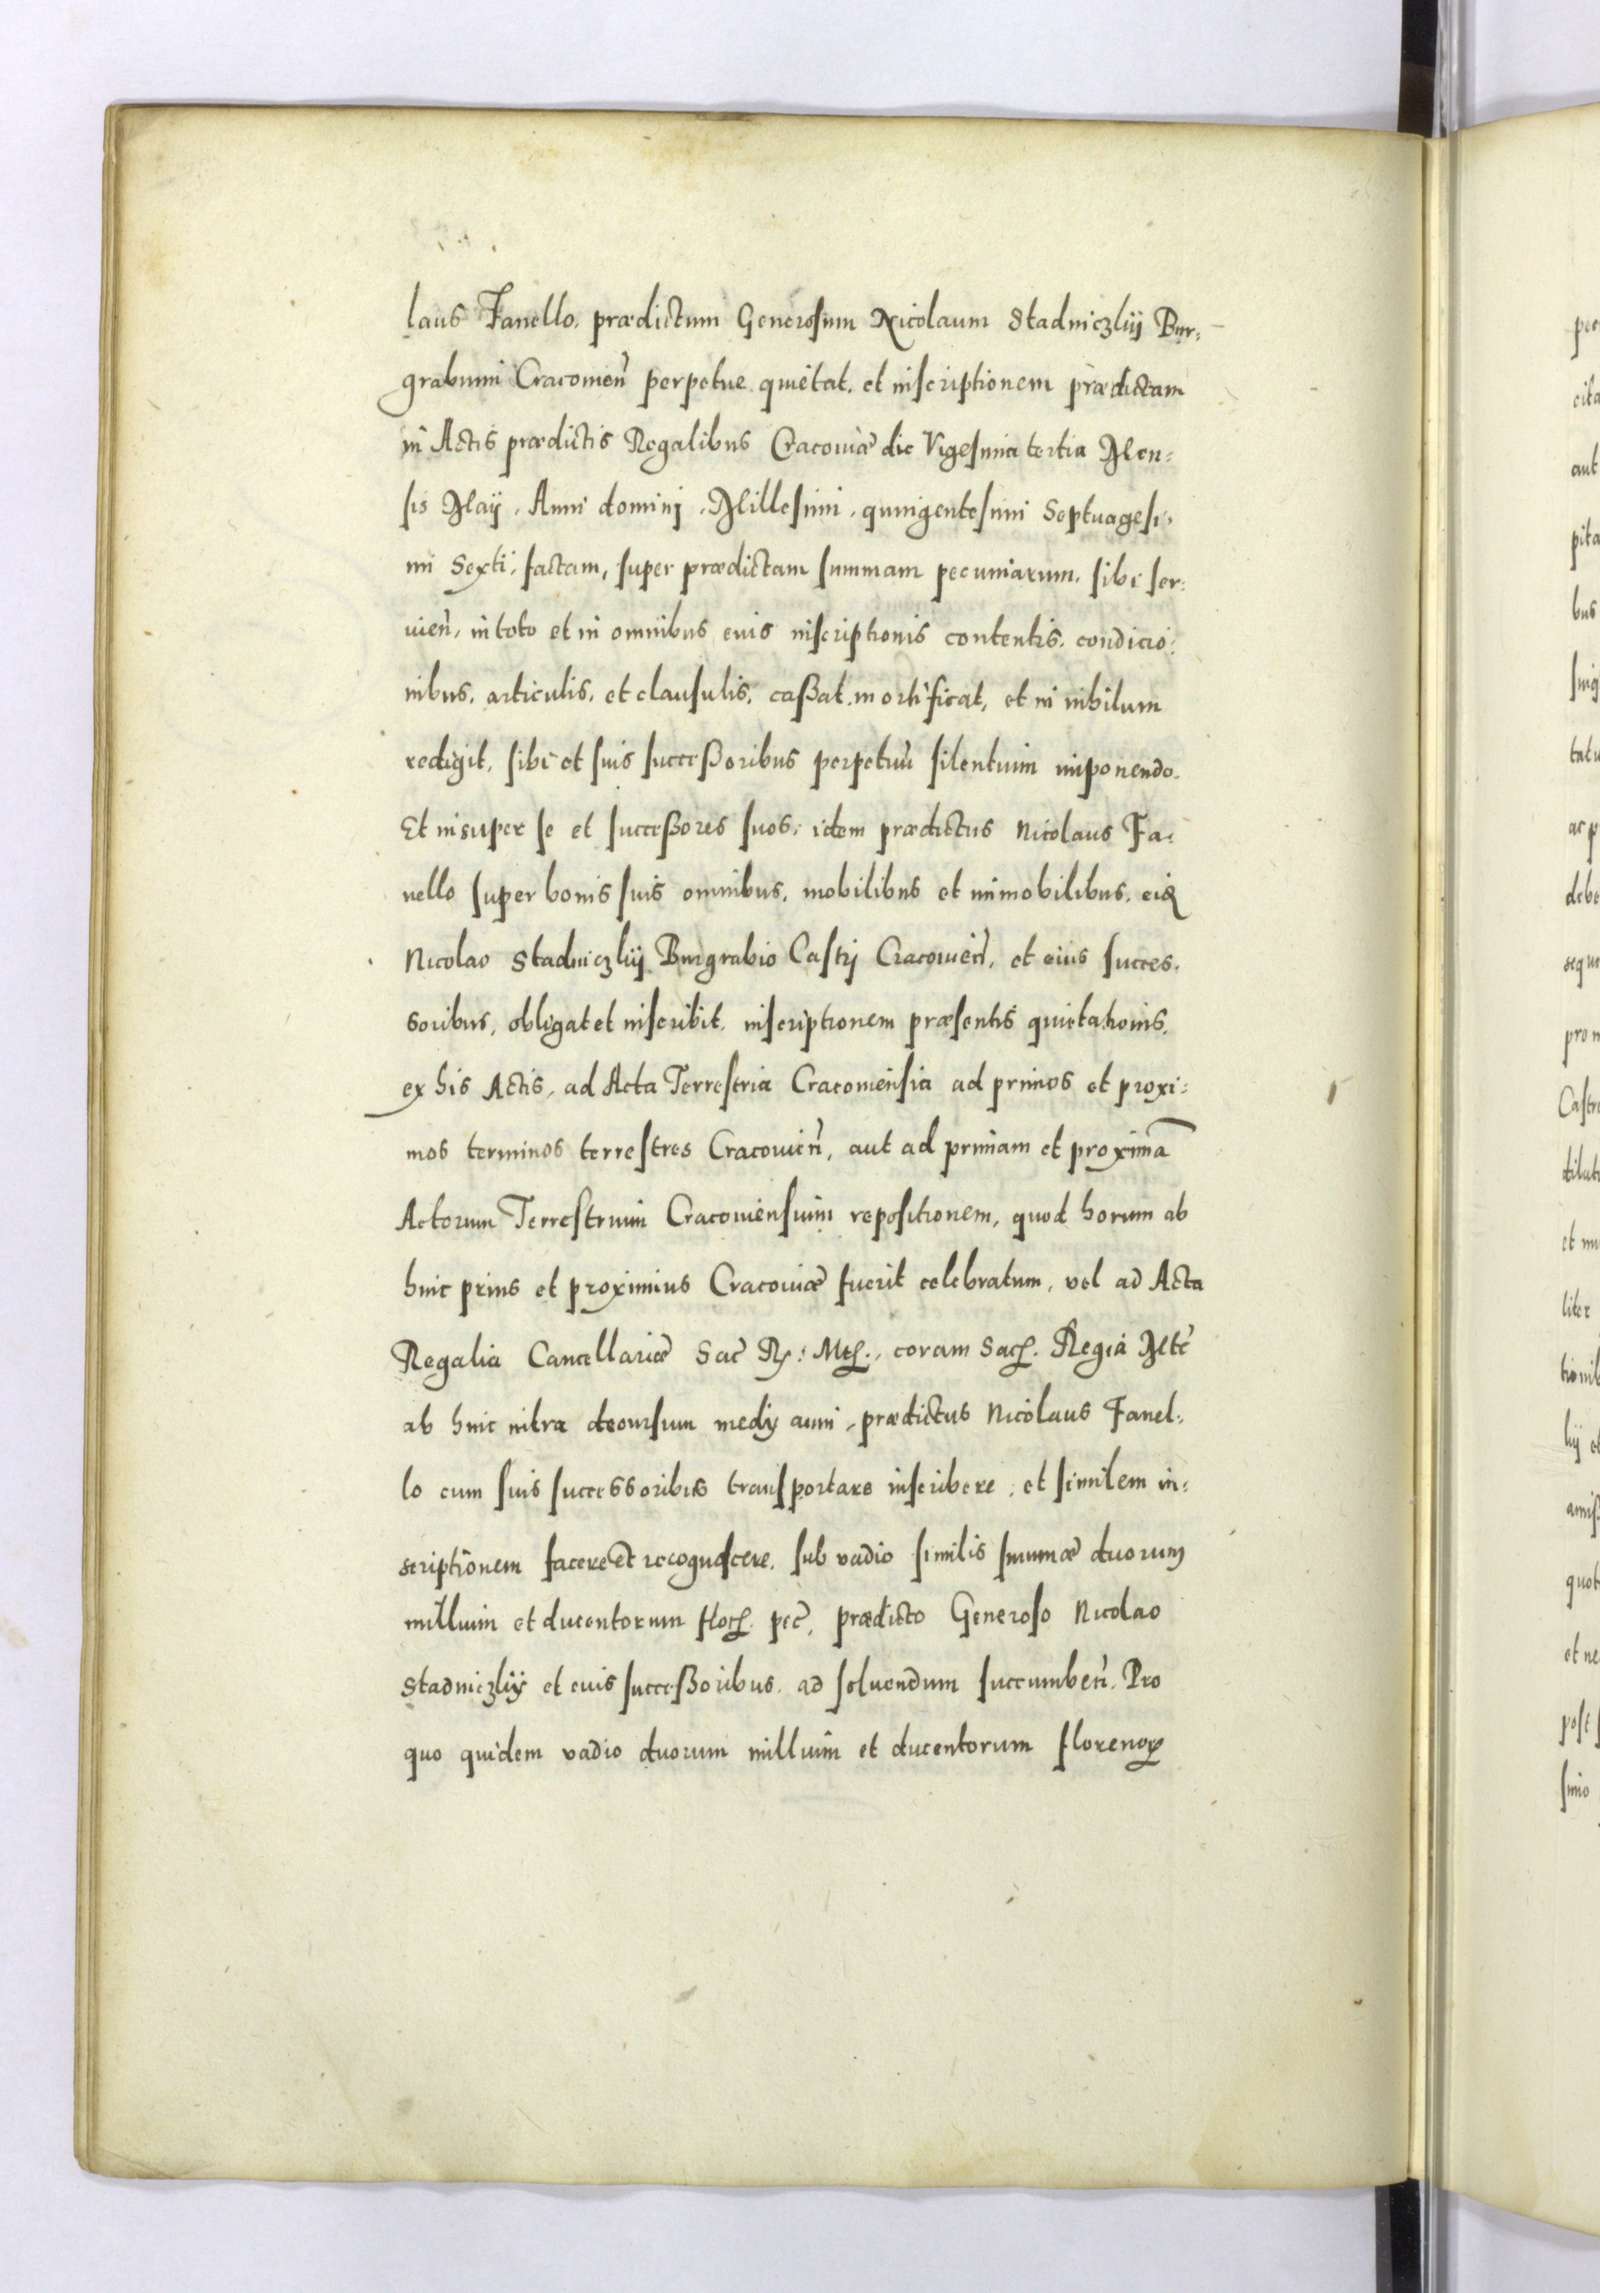 laus Fanello, prædictum Generosum Nicolaum Stadniczkij Bur-
grabium Cracovien̄ perpetue quietat, et inscriptionem prædictam
in Actis prædictis Regalibus Cracoviæ die Vigesima tertia Men-
sis Maij, Anni dominj, Millesimi, quingentesimi Septuagesi-
mi Sexti, factam, super prædictam summam pecuniarum, sibi ser-
vien̄, in toto et in omnibus euis inscriptionis contentis, condicio-
nibus, articulis, et clausulis, caßat, mortificat, et in nihilum
redigit, sibi et suis succeßoribus perpetuū silentium imponendo.
Et insuper se et succeßores suos, idem prædictus Nicolaus Fa-
nello super bonis suis omnibus, mobilibus et immobilibus, eidē
Nicolao Stadniczkij Burgrabio Castrj Cracovien̄, et eius succes-
soribus, obligat et inscribit, inscriptionem præsentis quietationis,
ex his Actis, ad Acta Terrestria Cracoviensia ad primos et proxi-
mos terminos terrestres Cracovien̄, aut ad primam et proximā
Actorum Terrestrium Cracoviensium repositionem, quod horum ab
hinc prius et proximius Cracoviæ fuerit celebratum, vel ad Acta
Regalia Cancellariæ Sac̄ R: Mtis., coram Sacr. Regia Mte
ab hinc intra decursum medij anni, prædictus Nicolaus Fanel-
lo cum suis successoribus transportare inscribere, et similem in-
scriptionem facere et recognoscere, sub vadio similis summæ duorum
millium et ducentorum flor. pec̄, prædicto Generoso Nicolao
Stadniczkij et euis succeßoribus, ad solvendum succumben̄. Pro
quo quidem vadio duorum millium et ducentorum florenorꝝ